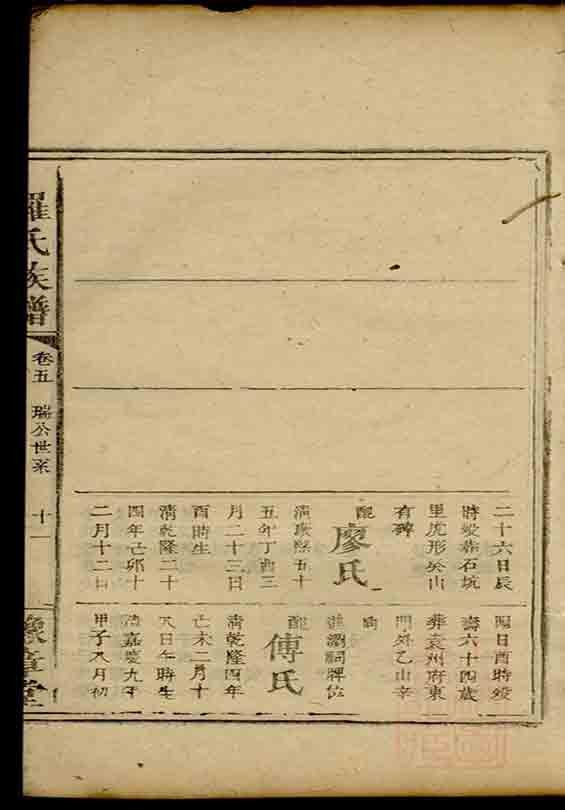 二十六日辰
時歿葬石坑
里虎形癸山
有碑
配廖氏
清康熙五十
五年丁酉三
月二十三日
酉時生
清乾隆二十
四年己卯十
二月十二日
四日酉時歿
壽六十四歲
葬袁州府東
門外乙山辛
向
進瀏祠牌位
配傅氏
清乾隆四年
己未二月十
八日午時生
清嘉慶九年
甲子八月初
羅氏族譜
卷五
瑞公世系
十一
豫章堂